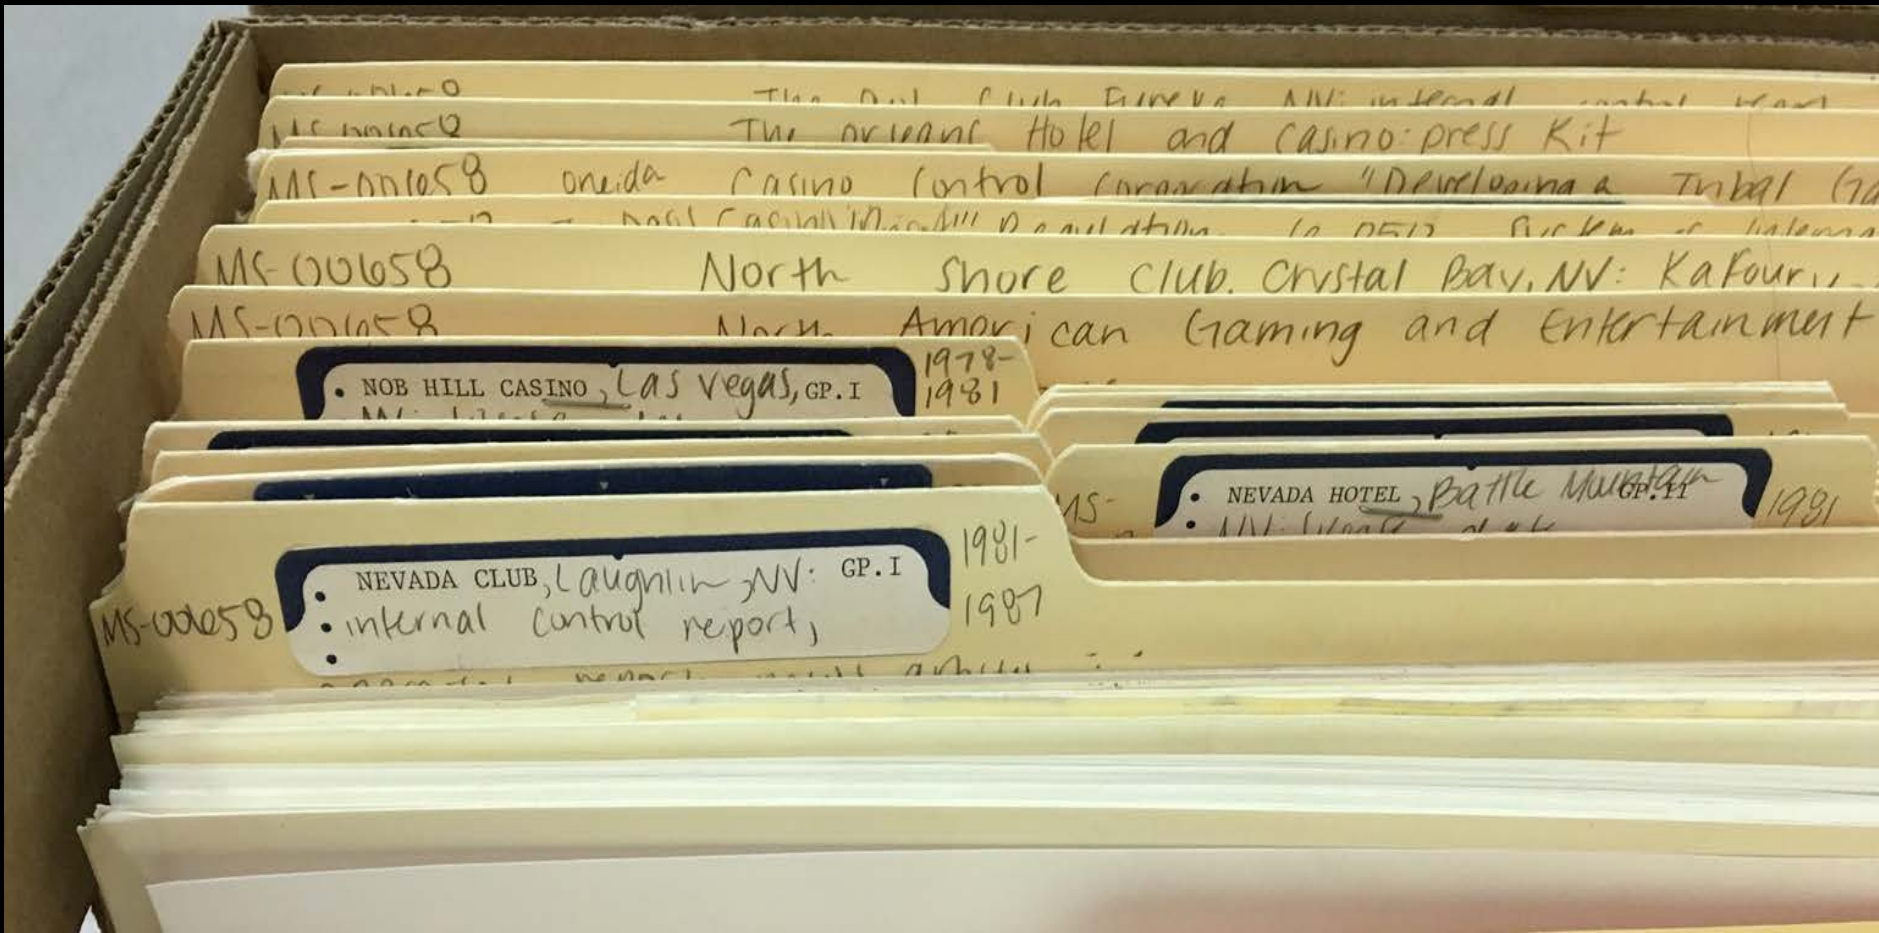 The Owl Club Eureka NV: internal control report
MS-00658 The Orleans Hotel and Casino: press Kit
MS-00658 Oneida Casino Control Corporation "Developing a Tribal Ga
MS-00658 North Shore Club. Crystal Bay, NV: Kafoury
MS-00658 North American Gaming and Entertainment
• NOB HILL CASINO, Las Vegas, GP.I 1978-
1981
• NEVADA HOTEL, Battle Mountain GP.II
1981
MS-
NV: license
MS-00658
• NEVADA CLUB, Laughlin, NV: GP.I
• internal control report,
•
1981-
1987